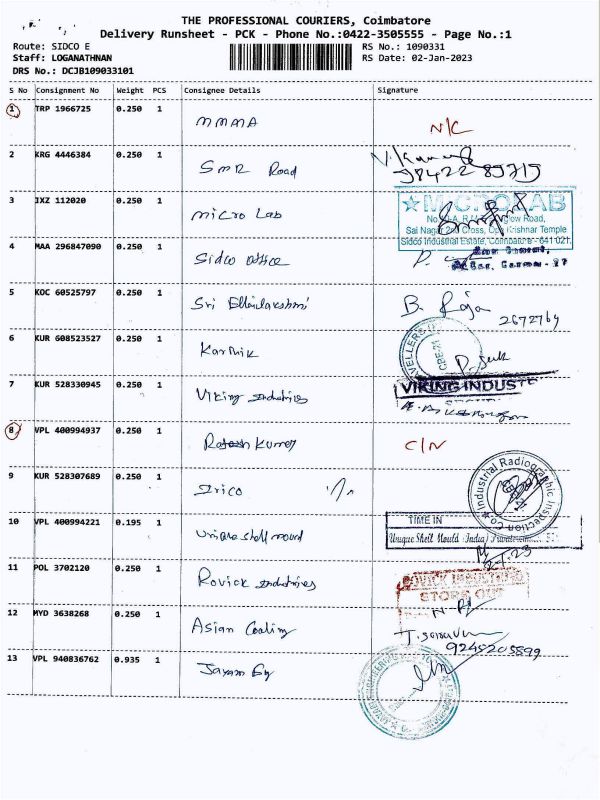 THE PROFESSIONAL COURIERS, Coimbatore
Delivery Runsheet - PCK - Phone No.:0422-3505555 - Page No.:1
Route: SIDCO E RS No.: 1090331
Staff: LOGANATHNAN RS Date: 02-Jan-2023
DRS No.: DCJB109033101
S No Consignment No Weight PCS Consignee Details Signature
1 TRP 1966725 0.250 1 MMMA N/C
2 KRG 4446384 0.250 1 SMR Road
3 IXZ 112020 0.250 1 Micro Lab
Sidco Industrial Estate, Coimbatore - 641 021.
4 MAA 296847090 0.250 1 Sidco office
5 KOC 60525797 0.250 1 Sri B. Raja
2672769
6 KUR 608523527 0.250 1 Karthik
7 KUR 528330945 0.250 1 Viking Industries
VIKING INDUST
8 VPL 400994937 0.250 1 Kumar C/N
9 KUR 528307689 0.250 1
Industrial Radiographic Inspection Co
10 VPL 400994221 0.195 1 Unique shell mould
TIME IN
Unique Shell Mould (India) Private
11 POL 3702120 0.250 1 Rovick Industries
ROVICK INDUSTRIES
STORES OUT
12 MYD 3638268 0.250 1 Asian Coating
9245205899
13 VPL 940836762 0.935 1